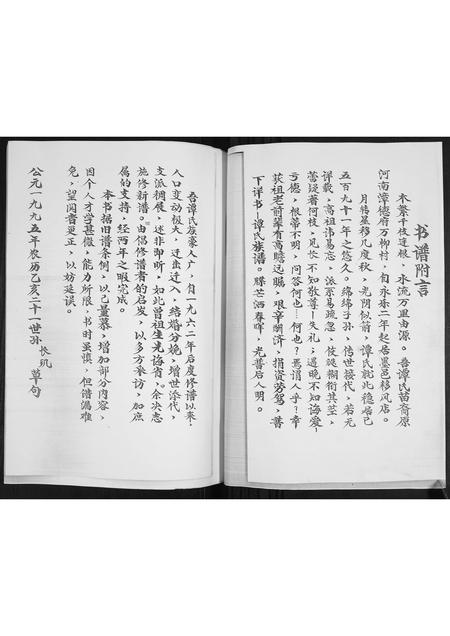 书谱附言
木繁千枝连根，水流万里由源。吾谭氏苗裔原
河南漳德府万柳村，自永乐二年起居墨邑移风店。
月转星移几度秋，光阴似箭，谭氏就此稳居已
五百九十一年之悠久。绵绵子孙，传世接代，若无
详载，高祖讳易忘，派系易疏忽，枝蔓糊衔其茎，
蕾疑著何枝，见长不知敬尊一失礼，逢晚不知诲爱一
亏德，根蒂不明，问答何也…何也？焉谓人乎？幸
获祖老前辈有高瞻远瞩，艰辛网济，捐资劳驾，普
下详书一谭氏族谱。牒芒洒春晖，光普后人明。
吾谭氏族豪人广，自一九六二年后度修谱以来，
人口变动极大，迁出迁入，结婚分娩，增世添代，
支派稠展，述非即昕，如此曾祖生光诲省。余决志
施修新谱。由倡修谱者的启发，以多方采访，加庶
属的支持，经两年之暇完成。
本书据旧谱条例，以己量慕，增加部分内容，
因个人才学甚微，能力所限，书时虽慎，但谐漏难
免，望阅者更正，以妨延误。
公元一九九五年农历乙亥二十一世孙 长玑 草句